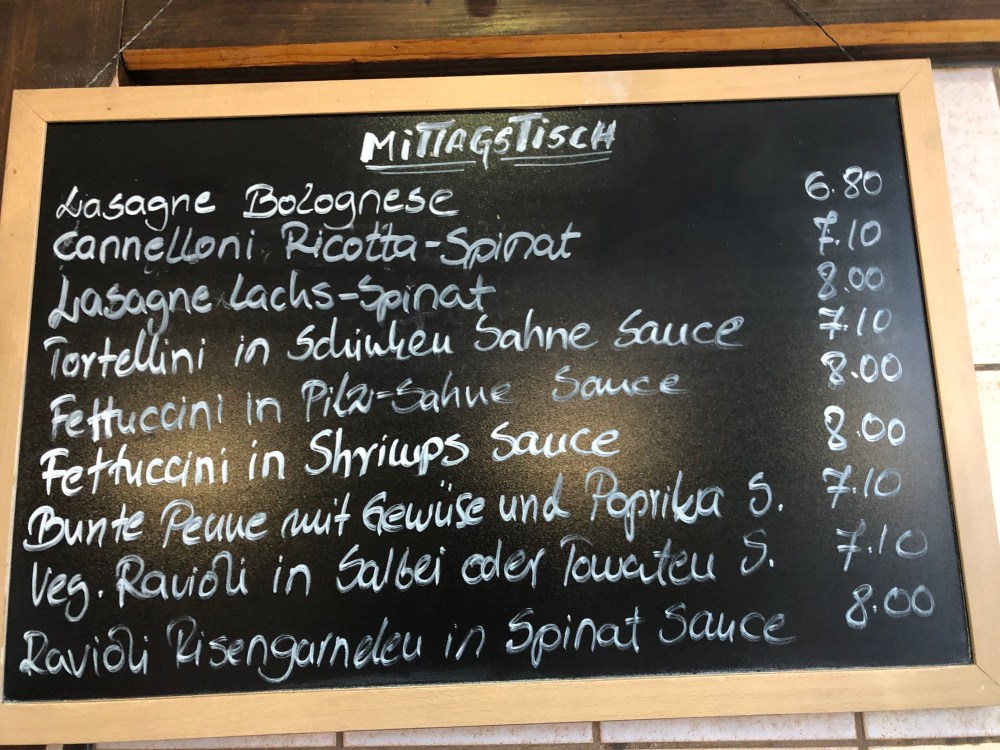 MiTTAGSTiSCH
Lasagne Bolognese 6.80
Cannelloni Ricotta-Spinat 7.10
Lasagne Lachs-Spinat 8.00
Tortellini in Schinken Sahne Sauce 7.10
Fettuccini in Pilz-Sahne Sauce 8.00
Fettuccini in Shrimps Sauce 8.00
Bunte Penne mit Gemüse und Paprika S. 7.10
Veg. Ravioli in Salbei oder Tomaten S. 7.10
Ravioli Risengarnelen in Spinat Sauce 8.00